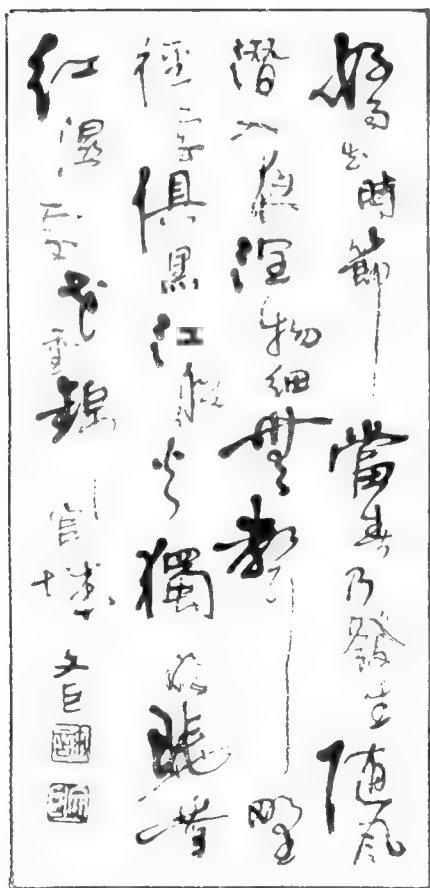 好雨知時節當春乃發生隨風
潛入夜潤物細無聲野
徑雲俱黑江船火獨明曉看
紅濕處花重錦官城